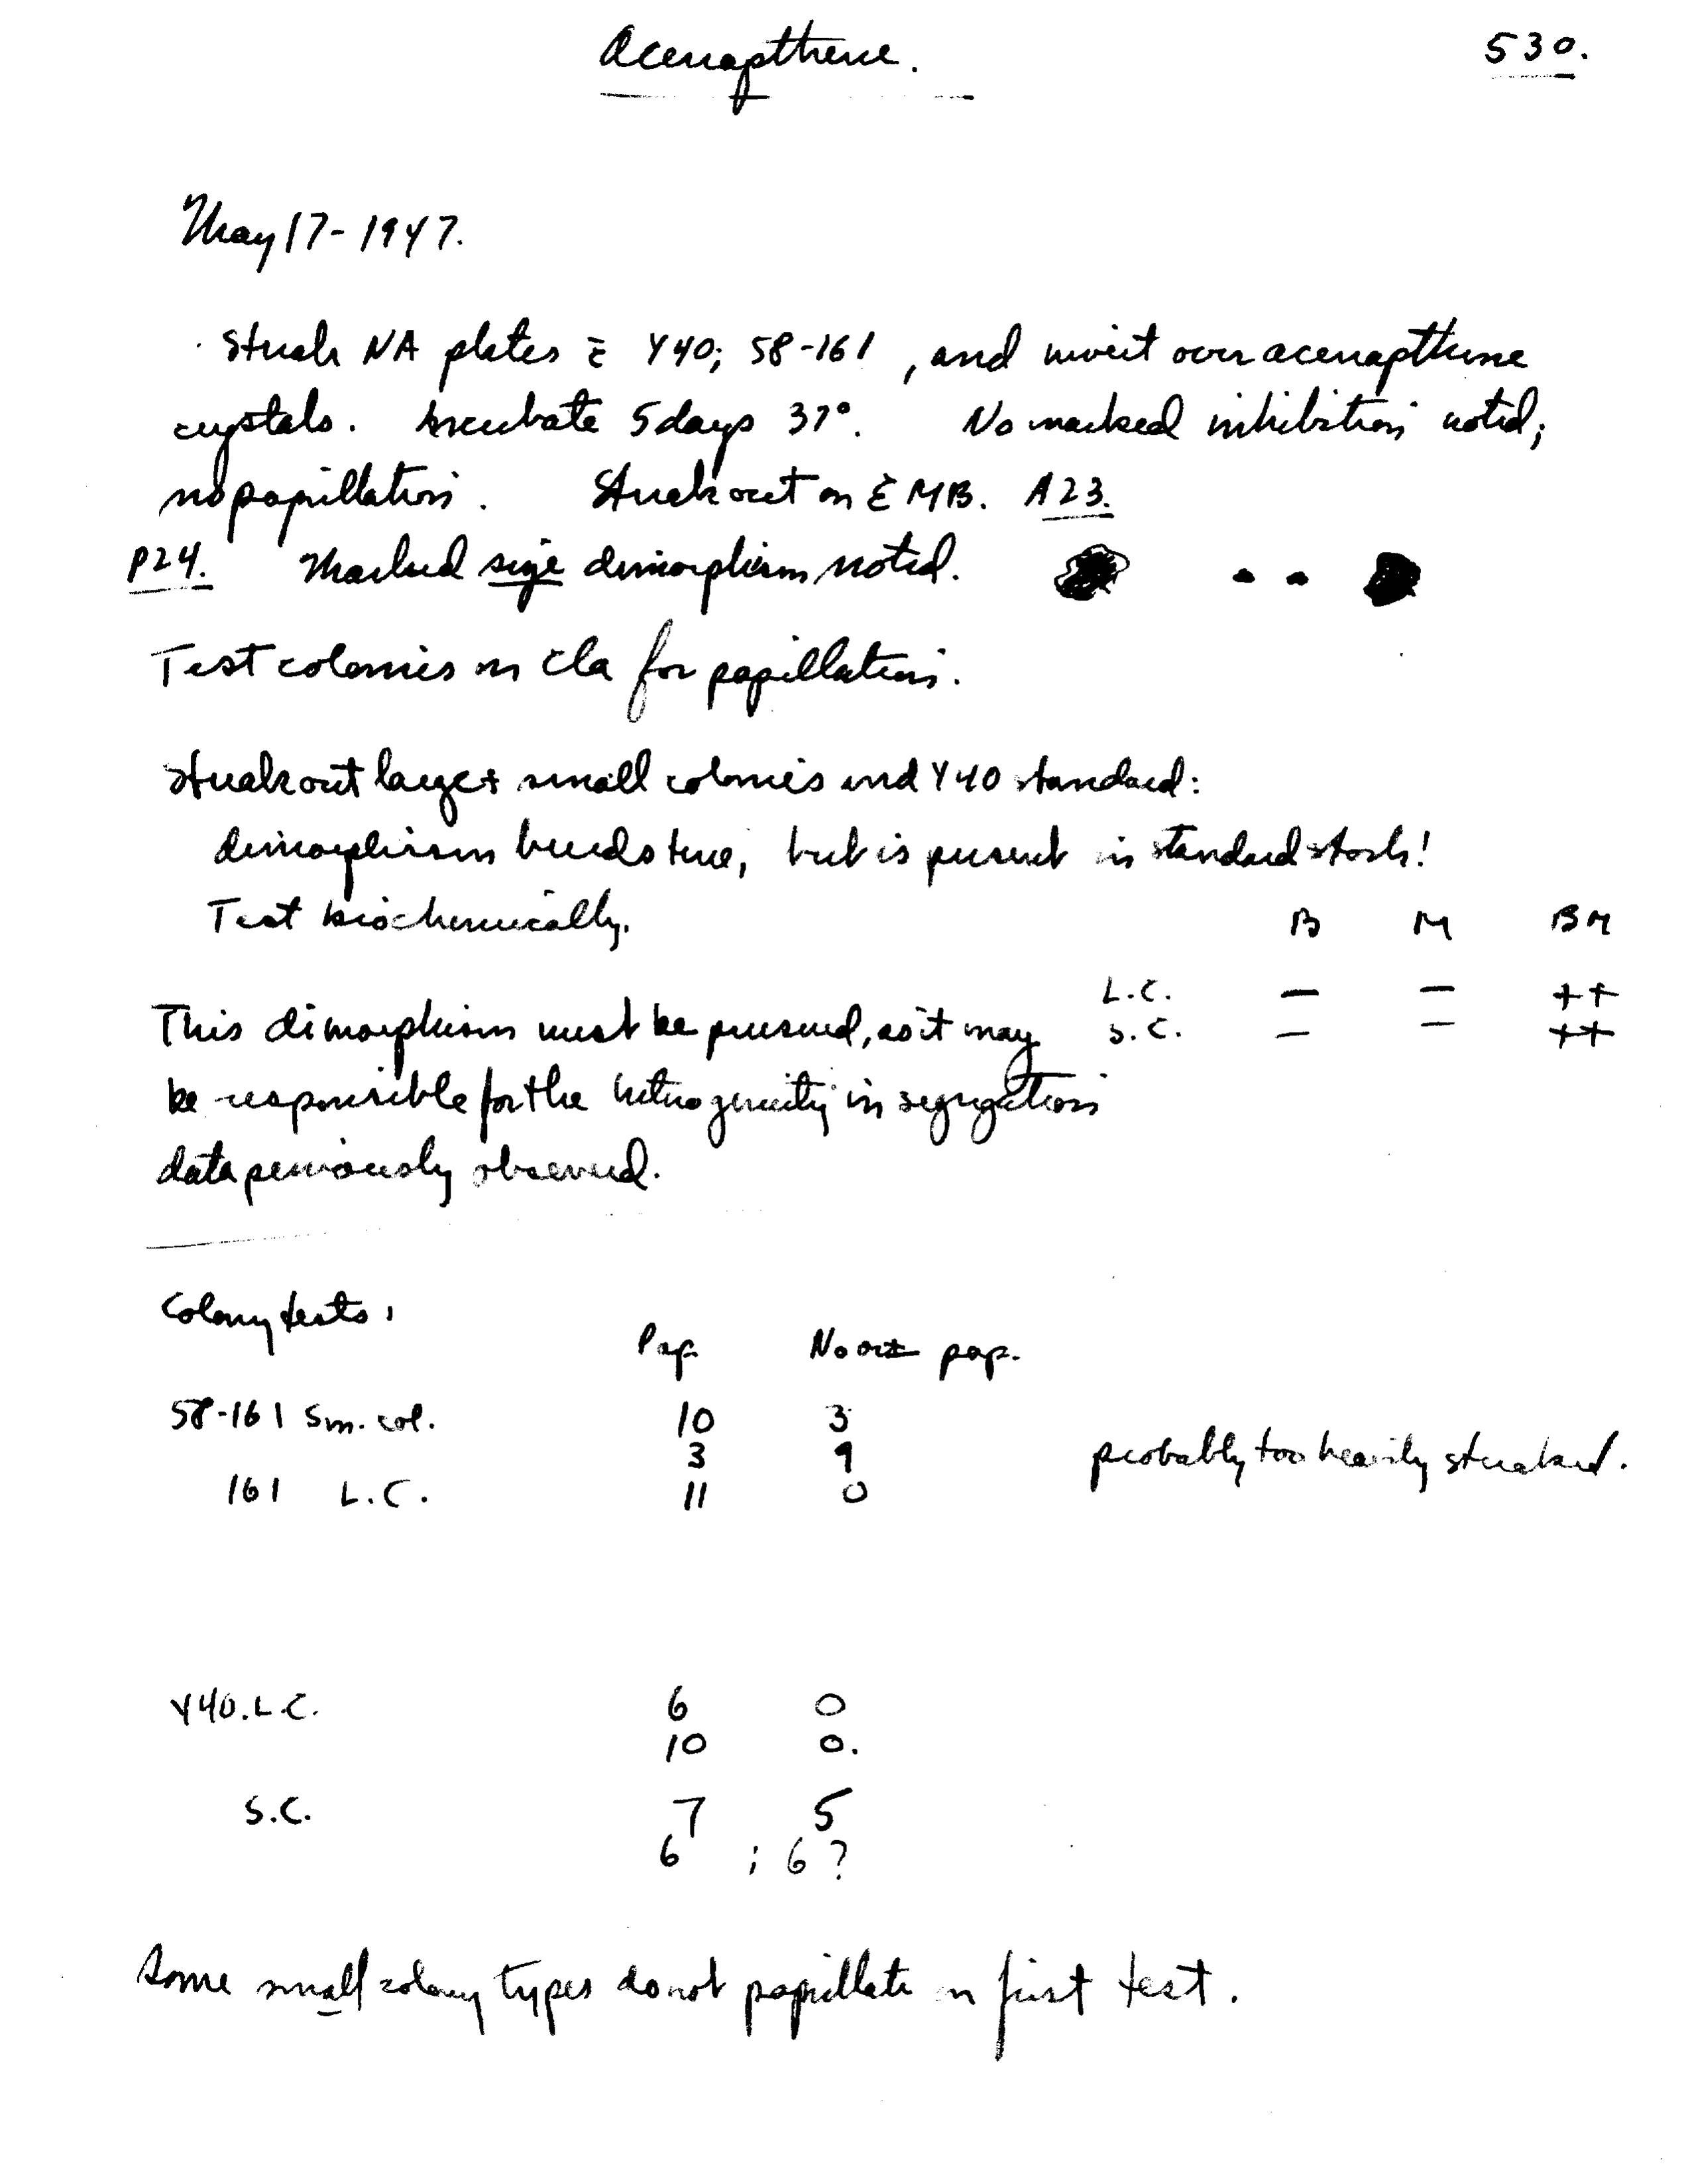 Acenapthene. 530.
May 17-1947.
Streak NA plates c̄ Y40; 58-161, and invert over acenapthene
crystals. Incubate 5 days 37°. No marked inhibition noted;
no papillation. Streak out on EMB. A23.
P24. Marked size dimorphism noted.
Test colonies on Cla for papillation.
Streak out large + small colonies and Y40 standard:
dimorphism breeds true, but is present in standard stock!
Test biochemically.
B M BM
L.C. — — ++
S.C. — — ++
This dimorphism must be pursued, as it may
be responsible for the heterogeneity in segregation
data previously observed.
Colony tests:
Pap. No or ± pap.
58-161 Sm. col. 10 3
3 9 probably too heavily streaked.
161 L.C. 11 0
Y40. L.C. 6 0
10 0.
S.C. 7 5
6 ; 6?
Some small colony types do not papillate on first test.